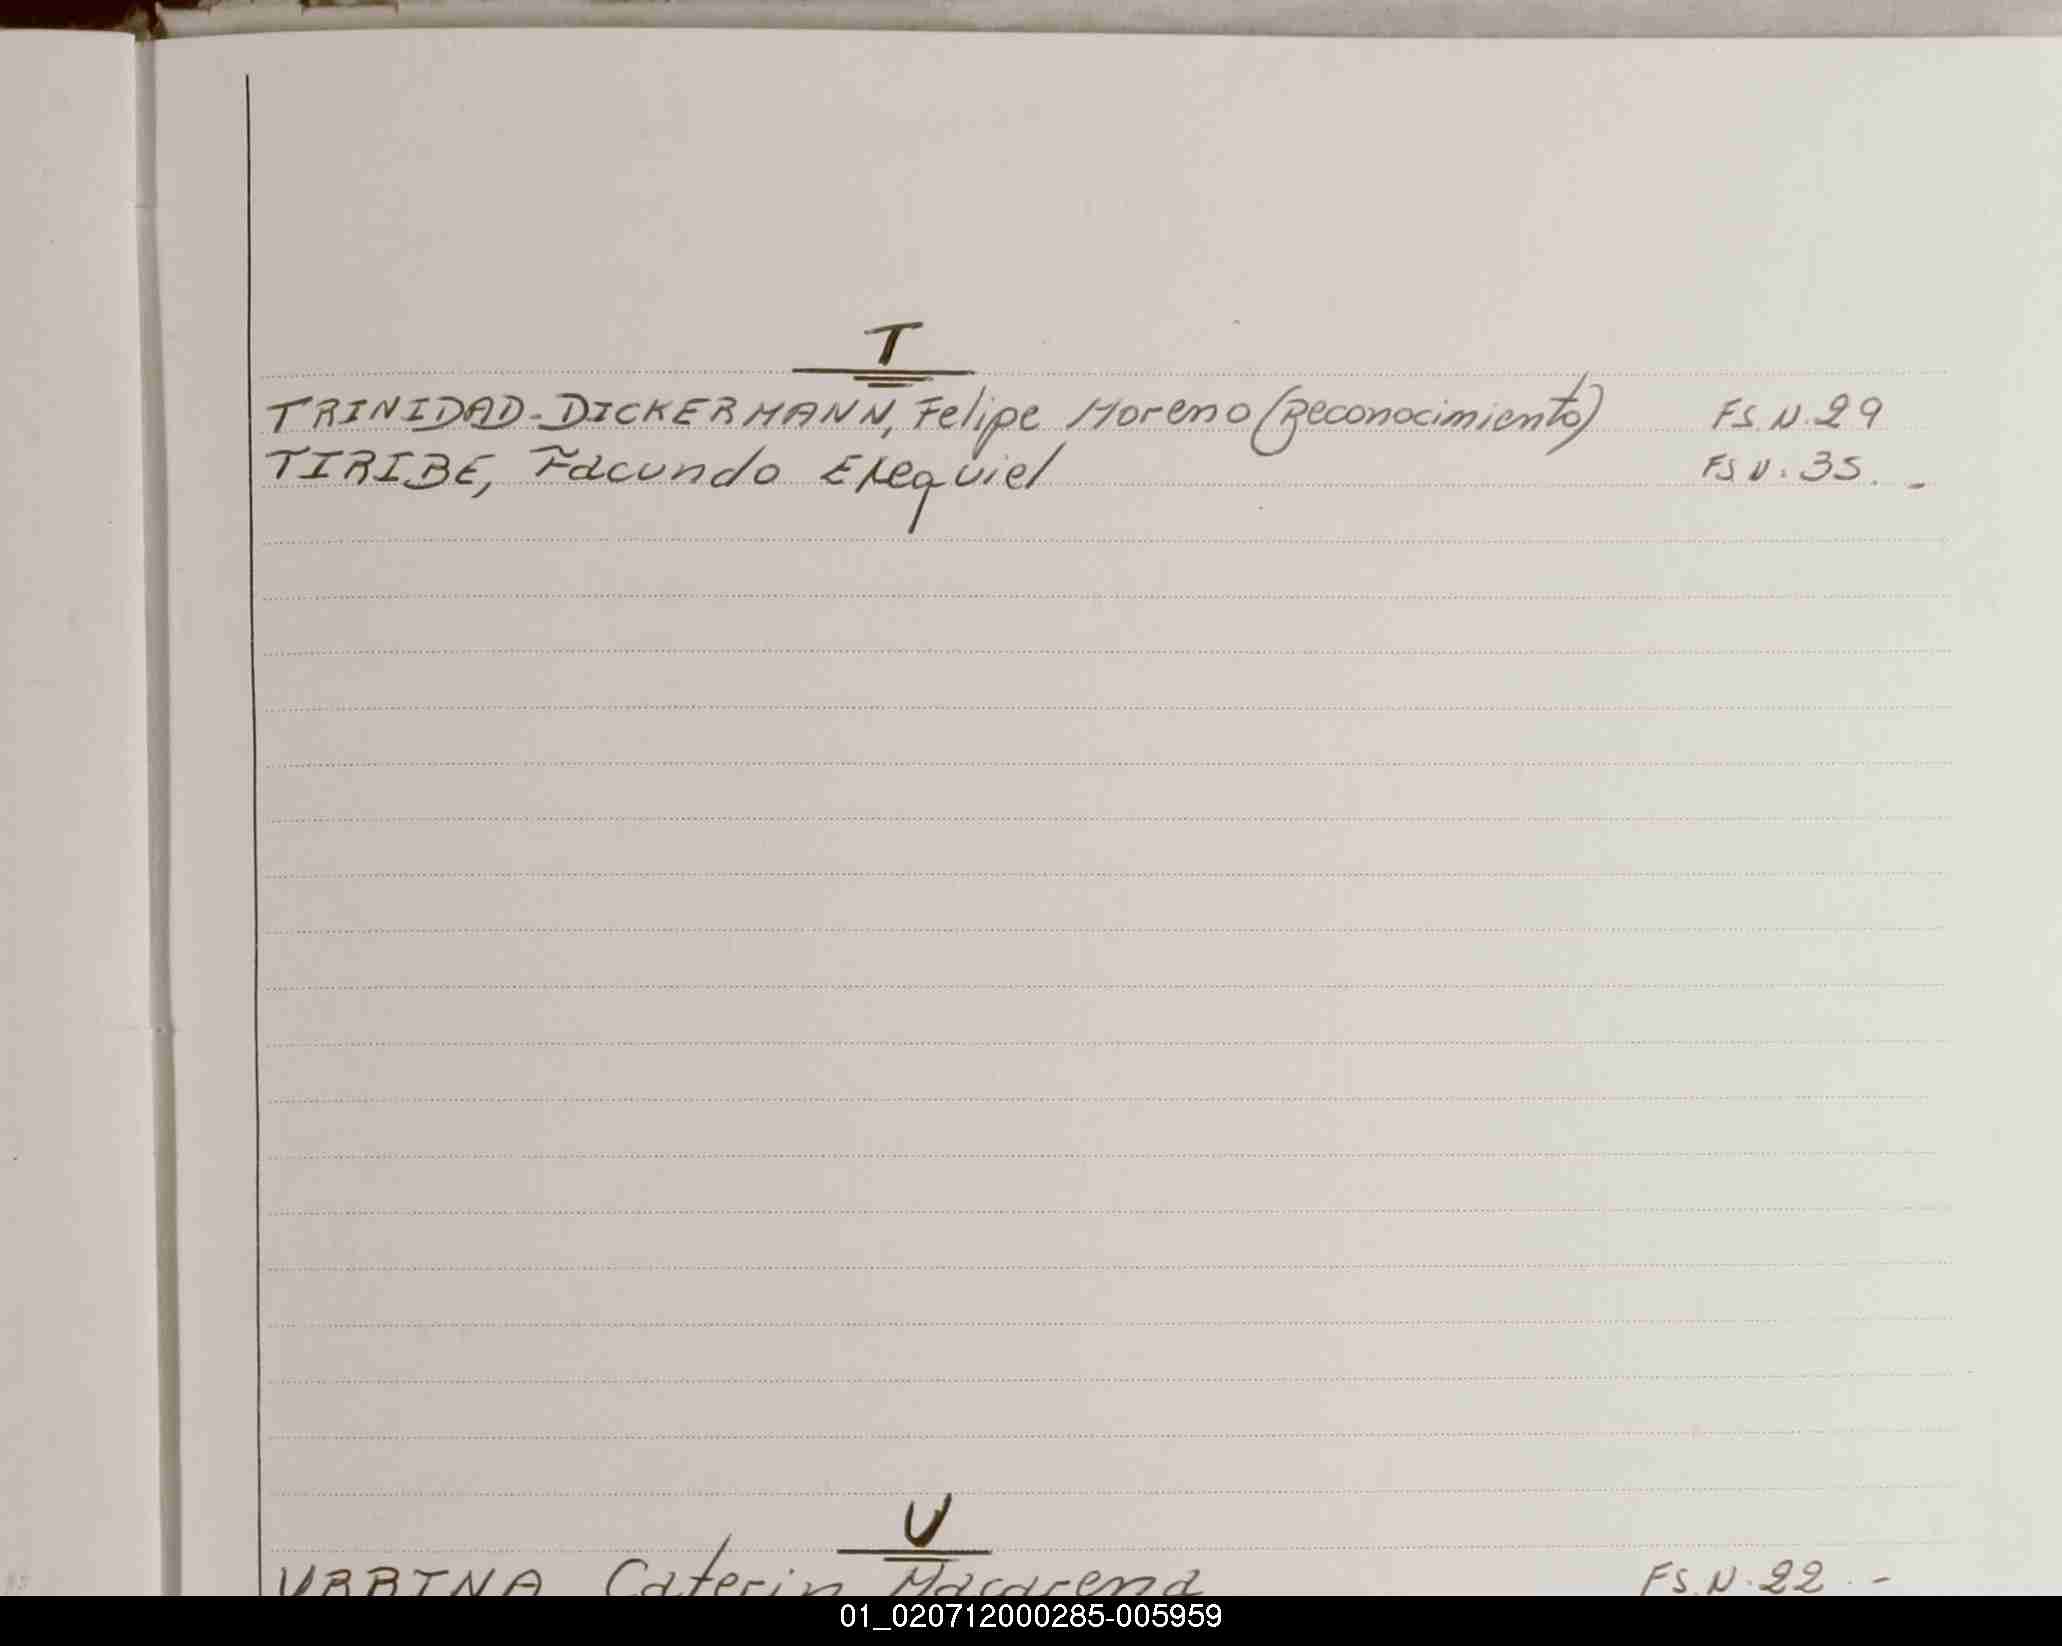 T
TRINIDAD-DICKERMANN, Felipe Moreno (Reconocimiento) FS.N.29
TIRIBE, Facundo Exequiel FS N. 35.-
U
URBINA Caterin Macarena FS.N.22.-
01_020712000285-005959